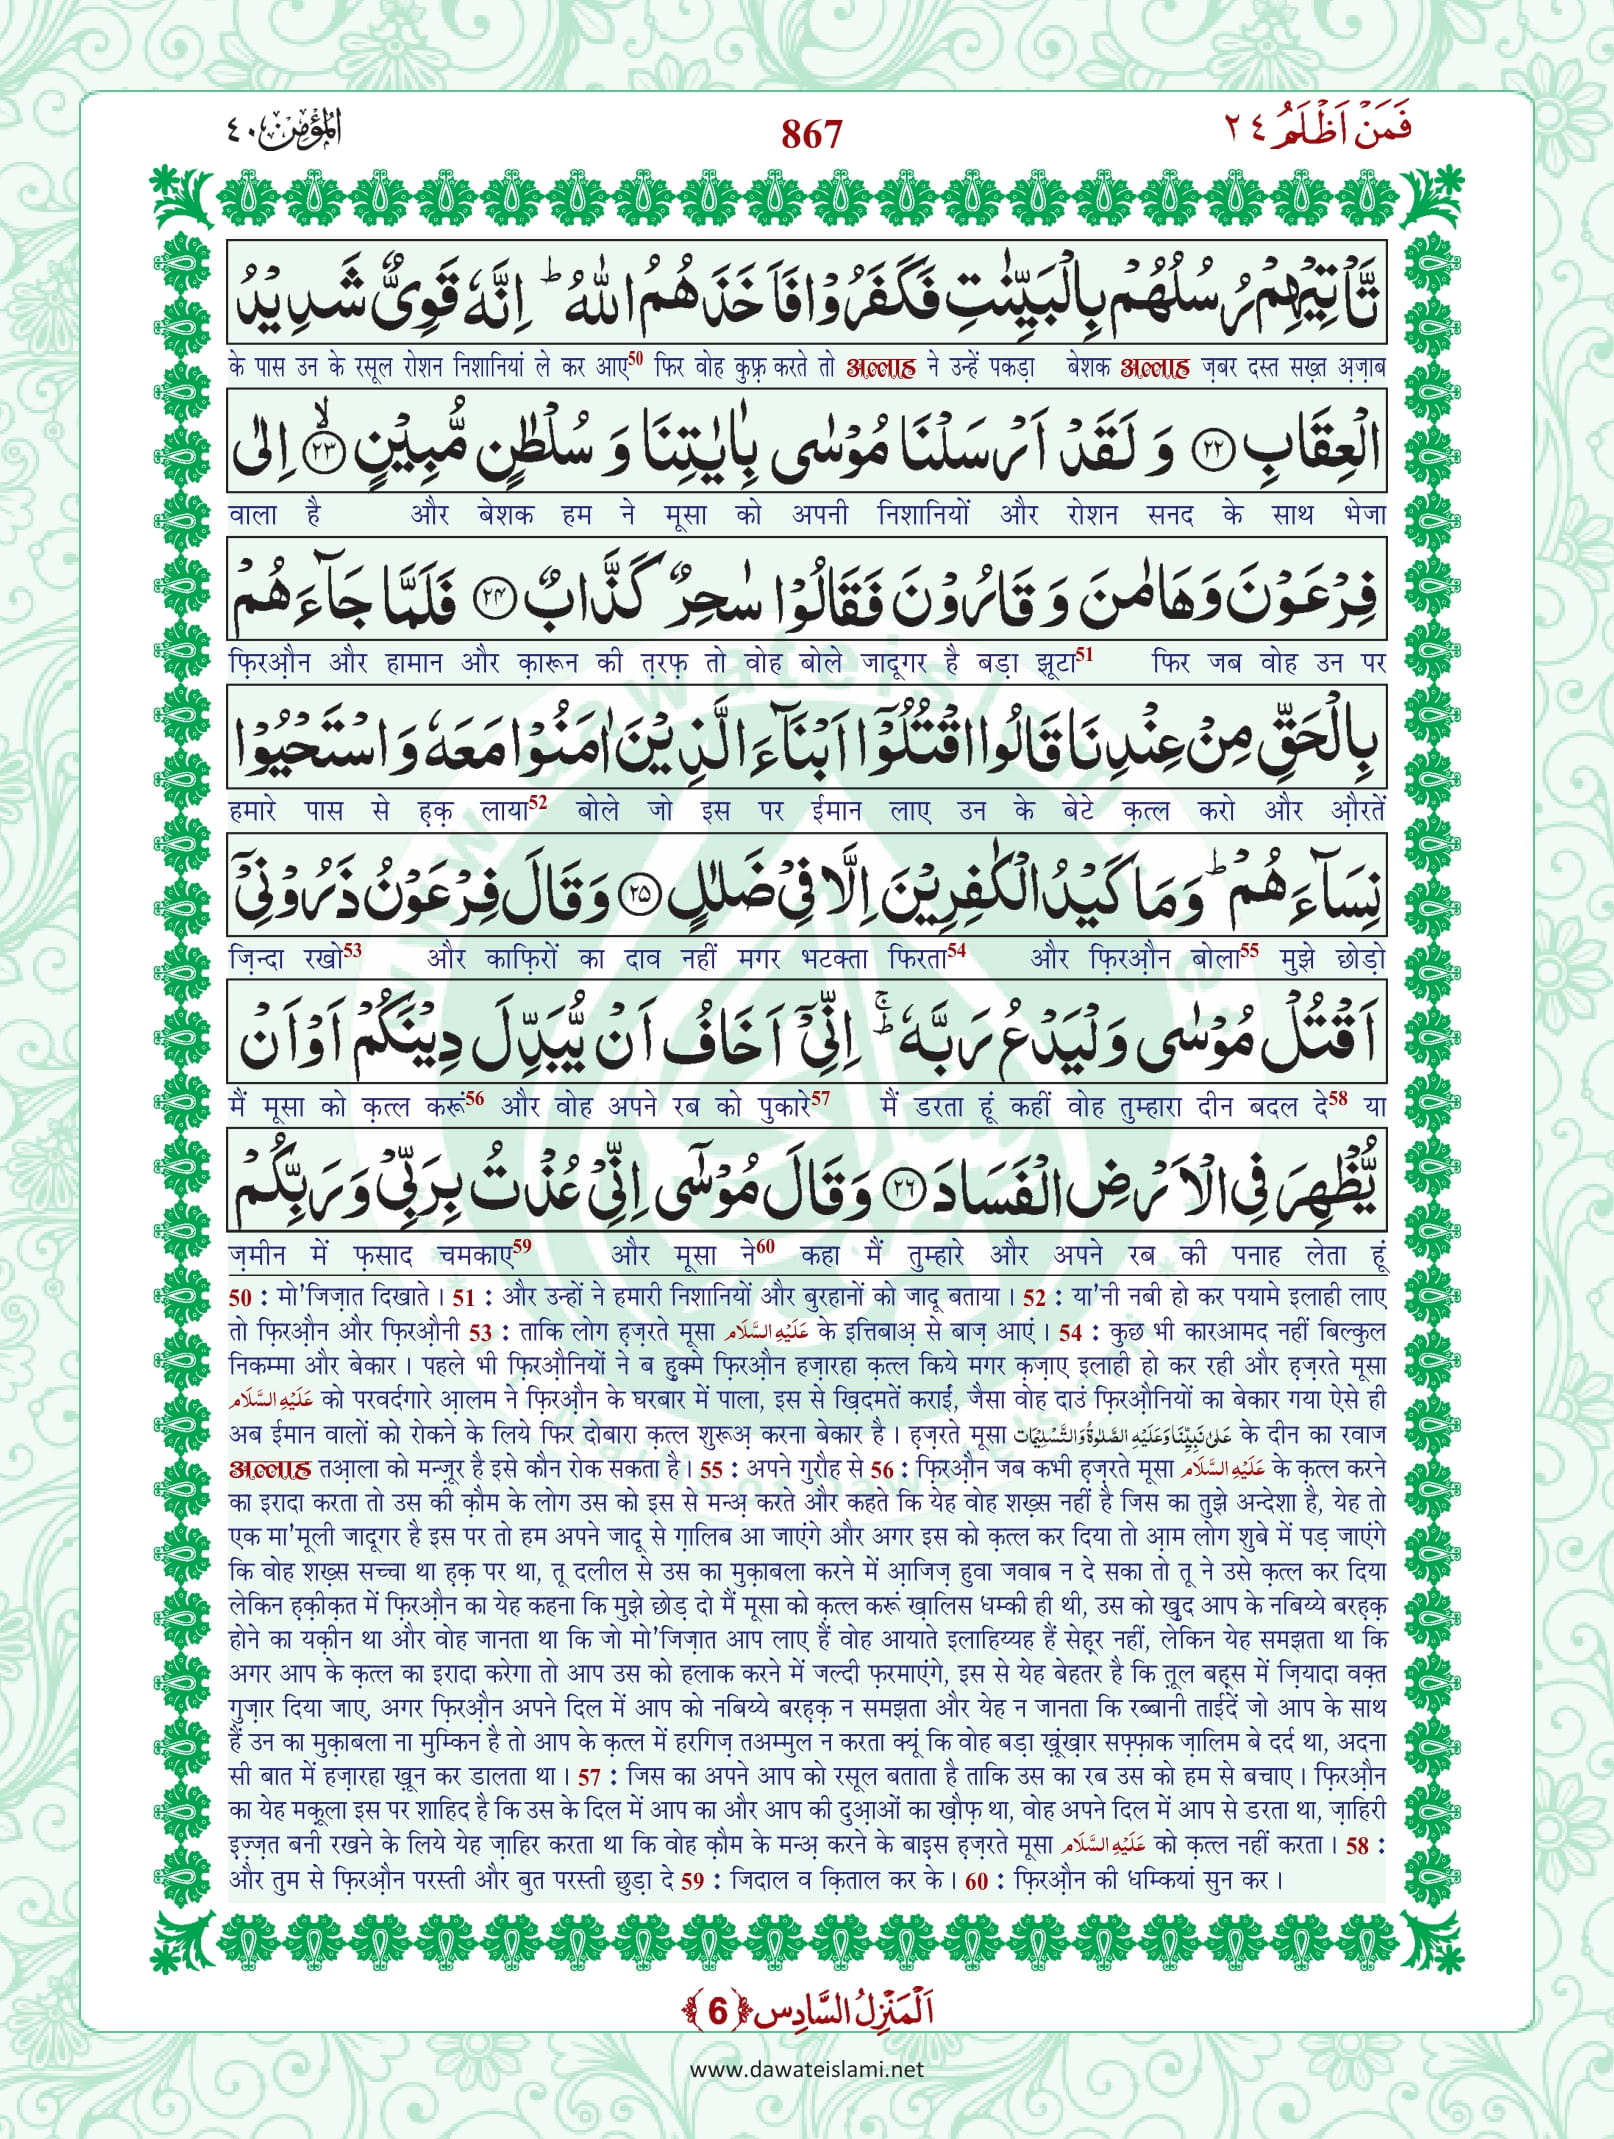 فَمَنْ اَظْلَمُ ٢٤
867
المُؤْمِن ٤٠
تَّاْتِیْهِمْ رُسُلُهُمْ بِالْبَیِّنٰتِ فَكَفَرُوْا فَاَخَذَهُمُ اللّٰهُ ؕ اِنَّهٗ قَوِیٌّ شَدِیْدُ
के पास उन के रसूल रोशन निशानियां ले कर आए50 फिर वोह कुफ़्र करते तो अल्लाह ने उन्हें पकड़ा बेशक अल्लाह ज़बर दस्त सख़्त अ़ज़ाब
الْعِقَابِ ﴿۲۲﴾ وَ لَقَدْ اَرْسَلْنَا مُوْسٰی بِاٰیٰتِنَا وَ سُلْطٰنٍ مُّبِیْنٍ ﴿ۙ۲۳﴾ اِلٰی
वाला है और बेशक हम ने मूसा को अपनी निशानियों और रोशन सनद के साथ भेजा
فِرْعَوْنَ وَ هَامٰنَ وَ قَارُوْنَ فَقَالُوْا سٰحِرٌ كَذَّابٌ ﴿۲۴﴾ فَلَمَّا جَآءَهُمْ
फ़िरऔ़न और हामान और क़ारून की त़रफ़ तो वोह बोले जादूगर है बड़ा झूटा51 फिर जब वोह उन पर
بِالْحَقِّ مِنْ عِنْدِنَا قَالُوا اقْتُلُوْۤا اَبْنَآءَ الَّذِیْنَ اٰمَنُوْا مَعَهٗ وَ اسْتَحْیُوْا
हमारे पास से ह़क़ लाया52 बोले जो इस पर ईमान लाए उन के बेटे क़त्ल करो और औ़रतें
نِسَآءَهُمْ ؕ وَ مَا كَیْدُ الْكٰفِرِیْنَ اِلَّا فِیْ ضَلٰلٍ ﴿۲۵﴾ وَ قَالَ فِرْعَوْنُ ذَرُوْنِیْۤ
ज़िन्दा रखो53 और काफ़िरों का दाव नहीं मगर भटक्ता फिरता54 और फ़िरऔ़न बोला55 मुझे छोड़ो
اَقْتُلْ مُوْسٰی وَ لْیَدْعُ رَبَّهٗ ۚؕ اِنِّیْۤ اَخَافُ اَنْ یُّبَدِّلَ دِیْنَكُمْ اَوْ اَنْ
मैं मूसा को क़त्ल करूं56 और वोह अपने रब को पुकारे57 मैं डरता हूं कहीं वोह तुम्हारा दीन बदल दे58 या
یُّظْهِرَ فِی الْاَرْضِ الْفَسَادَ ﴿۲۶﴾ وَ قَالَ مُوْسٰۤی اِنِّیْ عُذْتُ بِرَبِّیْ وَ رَبِّكُمْ
ज़मीन में फ़साद चमकाए59 और मूसा ने60 कहा मैं तुम्हारे और अपने रब की पनाह लेता हूं
50 : मो'जिज़ात दिखाते । 51 : और उन्हों ने हमारी निशानियों और बुरहानों को जादू बताया । 52 : या'नी नबी हो कर पयामे इलाही लाए
तो फ़िरऔ़न और फ़िरऔ़नी 53 : ताकि लोग ह़ज़रते मूसा عَلَیْهِ السَّلَام के इत्तिबाअ़ से बाज़ आएं । 54 : कुछ भी कारआमद नहीं बिल्कुल
निकम्मा और बेकार । पहले भी फ़िरऔ़नियों ने ब हुक्मे फ़िरऔ़न हज़ारहा क़त्ल किये मगर क़ज़ाए इलाही हो कर रही और ह़ज़रते मूसा
عَلَیْهِ السَّلَام को परवर्दगारे आ़लम ने फ़िरऔ़न के घरबार में पाला, इस से ख़िदमतें कराईं, जैसा वोह दाउं फ़िरऔ़नियों का बेकार गया ऐसे ही
अब ईमान वालों को रोकने के लिये फिर दोबारा क़त्ल शुरूअ़ करना बेकार है । ह़ज़रते मूसा عَلٰی نَبِیِّنَا وَعَلَیْهِ الصَّلٰوةُ وَالتَّسْلِیْمَات के दीन का रवाज
अल्लाह तआ़ला को मन्ज़ूर है इसे कौन रोक सकता है । 55 : अपने गुरौह से 56 : फ़िरऔ़न जब कभी ह़ज़रते मूसा عَلَیْهِ السَّلَام के क़त्ल करने
का इरादा करता तो उस की क़ौम के लोग उस को इस से मन्अ़ करते और कहते कि येह वोह शख़्स नहीं है जिस का तुझे अन्देशा है, येह तो
एक मा'मूली जादूगर है इस पर तो हम अपने जादू से ग़ालिब आ जाएंगे और अगर इस को क़त्ल कर दिया तो आ़म लोग शुबे में पड़ जाएंगे
कि वोह शख़्स सच्चा था ह़क़ पर था, तू दलील से उस का मुक़ाबला करने में आ़जिज़ हुवा जवाब न दे सका तो तू ने उसे क़त्ल कर दिया
लेकिन ह़क़ीक़त में फ़िरऔ़न का येह कहना कि मुझे छोड़ दो मैं मूसा को क़त्ल करूं ख़ालिस धम्की ही थी, उस को ख़ुद आप के नबिय्ये बरह़क़
होने का यक़ीन था और वोह जानता था कि जो मो'जिज़ात आप लाए हैं वोह आयाते इलाहिय्यह हैं सेह़र नहीं, लेकिन येह समझता था कि
अगर आप के क़त्ल का इरादा करेगा तो आप उस को हलाक करने में जल्दी फ़रमाएंगे, इस से येह बेहतर है कि तू़ल बह़स में ज़ियादा वक़्त
गुज़ार दिया जाए, अगर फ़िरऔ़न अपने दिल में आप को नबिय्ये बरह़क़ न समझता और येह न जानता कि रब्बानी ताईदें जो आप के साथ
हैं उन का मुक़ाबला ना मुम्किन है तो आप के क़त्ल में हरगिज़ तअम्मुल न करता क्यूं कि वोह बड़ा ख़ूंख़ार सफ़्फ़ाक ज़ालिम बे दर्द था, अदना
सी बात में हज़ारहा ख़ून कर डालता था । 57 : जिस का अपने आप को रसूल बताता है ताकि उस का रब उस को हम से बचाए । फ़िरऔ़न
का येह मक़ूला इस पर शाहिद है कि उस के दिल में आप का और आप की दुआ़ओं का ख़ौफ़ था, वोह अपने दिल में आप से डरता था, ज़ाहिरी
इ़ज़्ज़त बनी रखने के लिये येह ज़ाहिर करता था कि वोह क़ौम के मन्अ़ करने के बाइ़स ह़ज़रते मूसा عَلَیْهِ السَّلَام को क़त्ल नहीं करता । 58 :
और तुम से फ़िरऔ़न परस्ती और बुत परस्ती छुड़ा दे 59 : जिदाल व क़िताल कर के । 60 : फ़िरऔ़न की धम्कियां सुन कर ।
اَلْمَنْزِلُ السَّادِس ﴿6﴾
www.dawateislami.net